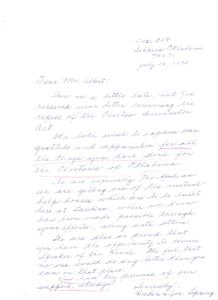 Box 217
Sahkina Oklahoma
74571
July 14, 1970
Dear Mr Albert:
This is a little late, but I've
received your letter concerning the
repeal of the Choctaw Termination
Act.
We both wish to express our
gratitude and appreciation for all
the things you have done for
the Choctaws of Oklahoma.
We are especially thankful as
we are getting one of the mutual-
help houses which are to be built
here in Talihina, which we know
has been made possible through
your efforts, along with others.
We are also so proud that
you have the opportunity to become
Speaker of the House. We feel that
no one would do any better than you
can in that place.
You have the promise of our
support, always!
Sincerely,